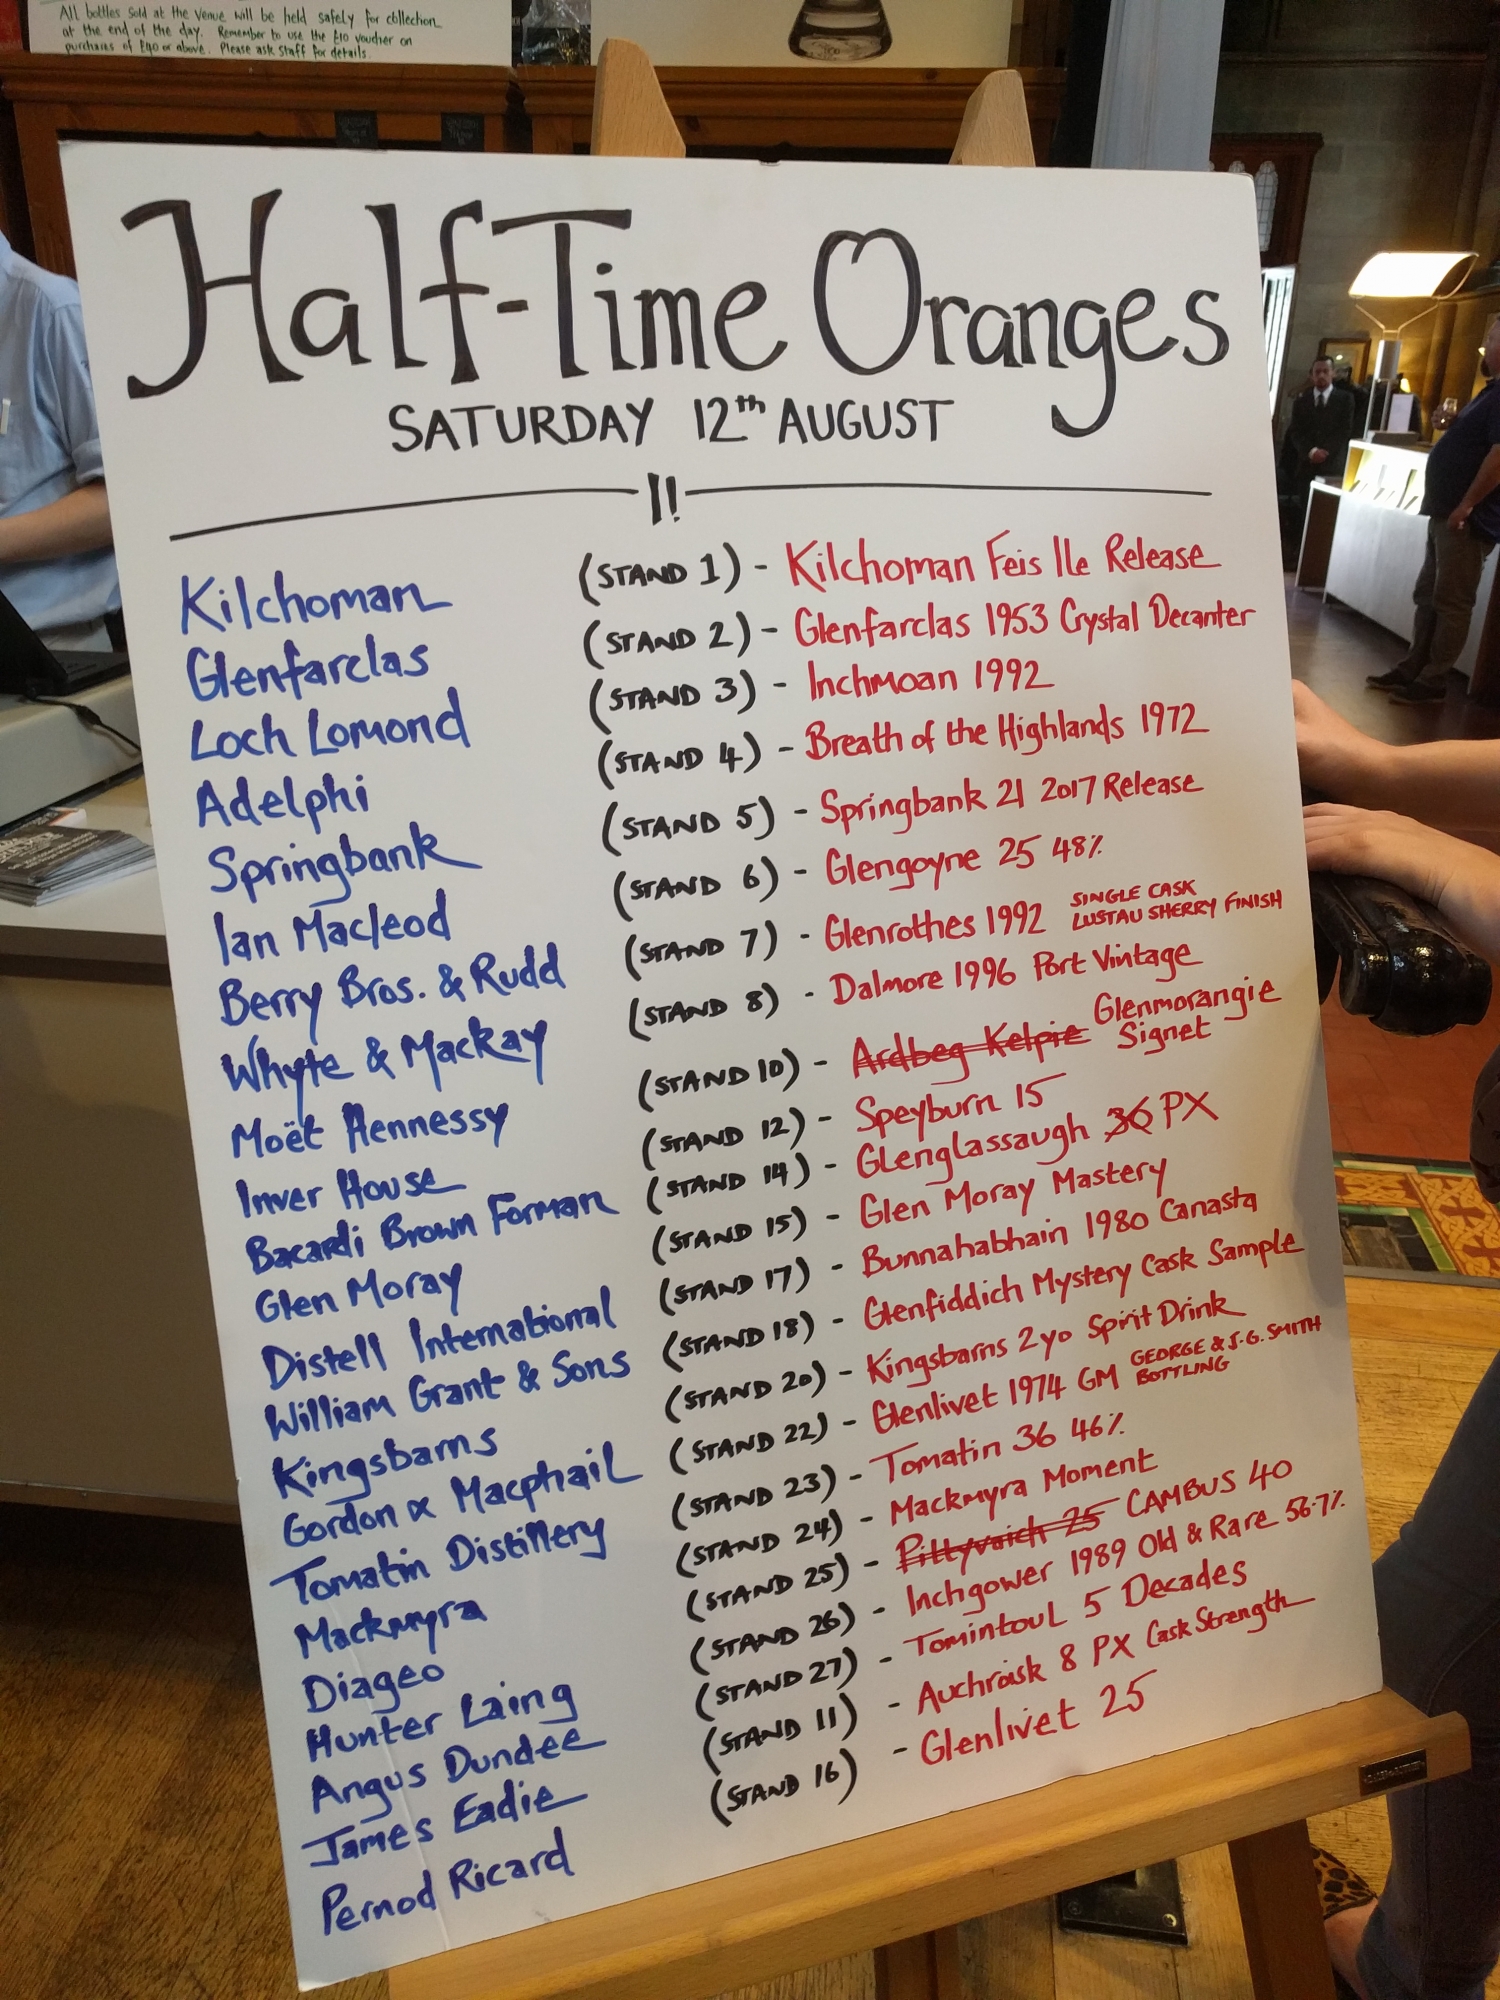 All bottles sold at the Venue will be held safely for collection
at the end of the day. Remember to use the £10 voucher on
purchases of £40 or above. Please ask staff for details.
Half-Time Oranges
SATURDAY 12th AUGUST
!!
Kilchoman (STAND 1) - Kilchoman Feis Ile Release
Glenfarclas (STAND 2) - Glenfarclas 1953 Crystal Decanter
Loch Lomond (STAND 3) - Inchmoan 1992
Adelphi (STAND 4) - Breath of the Highlands 1972
Springbank (STAND 5) - Springbank 21 2017 Release
Ian Macleod (STAND 6) - Glengoyne 25 48%
Berry Bros. & Rudd (STAND 7) - Glenrothes 1992 SINGLE CASK LUSTAU SHERRY FINISH
Whyte & Mackay (STAND 8) - Dalmore 1996 Port Vintage
Moët Hennessy (STAND 10) - Ardbeg Kelpie Glenmorangie Signet
Inver House (STAND 12) - Speyburn 15
Bacardi Brown Forman (STAND 14) - Glenglassaugh 36 PX
Glen Moray (STAND 15) - Glen Moray Mastery
Distell International (STAND 17) - Bunnahabhain 1980 Canasta
William Grant & Sons (STAND 18) - Glenfiddich Mystery Cask Sample
Kingsbarns (STAND 20) - Kingsbarns 2yo Spirit Drink
Gordon & Macphail (STAND 22) - Glenlivet 1974 GM GEORGE & J.G. SMITH BOTTLING
Tomatin Distillery (STAND 23) - Tomatin 36 46%
Mackmyra (STAND 24) - Mackmyra Moment
Diageo (STAND 25) - Pittyvaich 25 CAMBUS 40
Hunter Laing (STAND 26) - Inchgower 1989 Old & Rare 56.7%
Angus Dundee (STAND 27) - Tomintoul 5 Decades
James Eadie (STAND 11) - Auchroisk 8 PX Cask Strength
Pernod Ricard (STAND 16) - Glenlivet 25